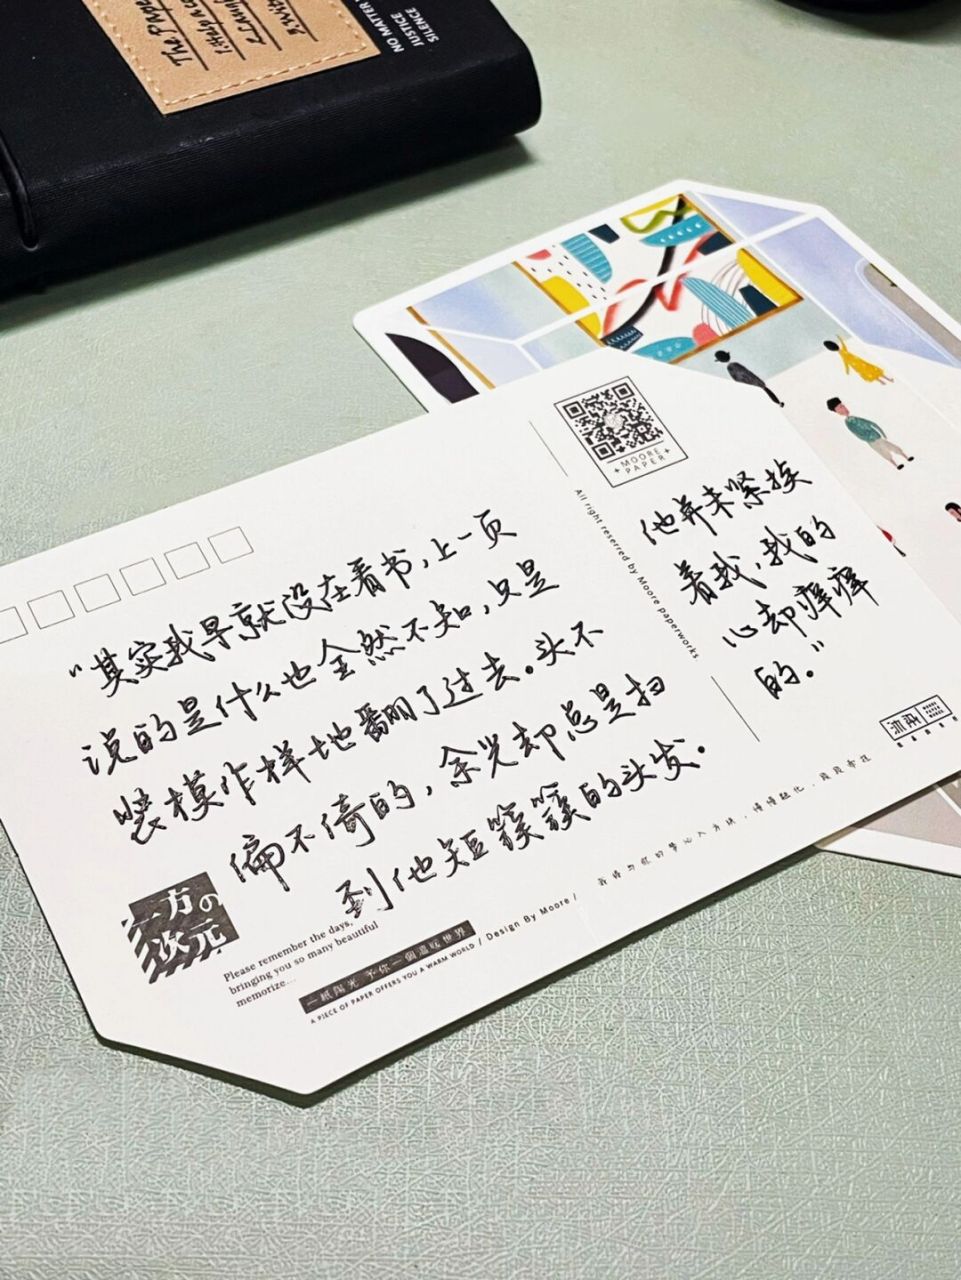 The Pape
NO MATTER
JUSTICE
SILENCE
+ MOORE +
PAPER
All right reserred by Moore paperworks
“其实我早就没在看书,上一页
说的是什么也全然不知,只是
装模作样地翻了过去。头不
偏不倚的,余光却总是扫
到他短簇簇的头发.
他并未紧挨
着我,我的
心却痒痒
的.”
一方の
次元
Please remember the days,
bringing you so many beautiful
memorize...
一紙陽光 予你一個溫暖世界
/ Design By Moore /
A PIECE OF PAPER OFFERS YOU A WARM WORLD